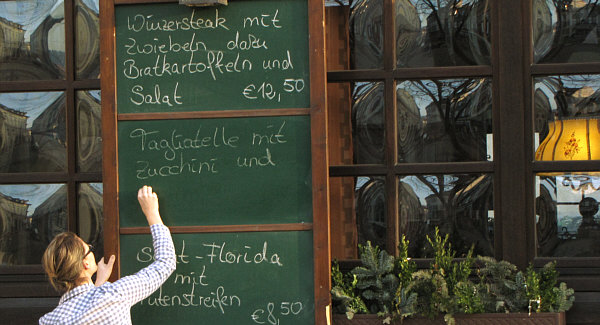 Winzersteak mit
Zwiebeln dazu
Bratkartoffeln und
Salat €12,50
Tagliatelle mit
Zucchini und
-Florida
mit
€8,50